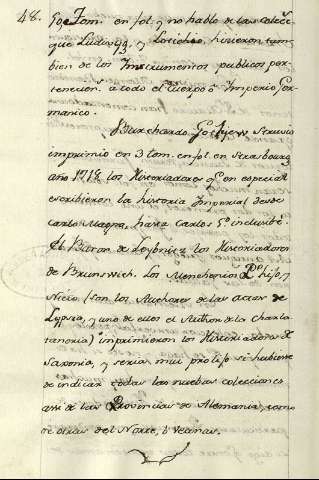 48.
Tom. en fol. y no hablo de las colecs.
que Ludovig, y hicieron tam-
bien de los Instrumentos publicos per-
tenecien. a todo el Cuerpo o Imperio Ger-
manico.
Burchardo Struvio
imprimio en 3 tom. en fol. en Strasbourg
año 1718 los Historiadores q.e en especial
escribieron la historia Imperial desde
Carlo Magno, hasta Carlos 5.o inclusibe.
El Baron de Leybniez los Historiadores
de Brunswich. Los Menchenios P.e hijo, y
(son los Authores de las actas de
Lypsia, y uno de ellos el Author de la Charla-
taneria) imprimieron los Historiadores de
Saxonia, y seria mui prolijo si hubiese
de indicar todas las nuebas colecciones
assi de las Provincias de Alemania, como
de otras del Norte, o vecinas.